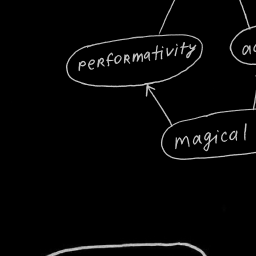 performativity
magical